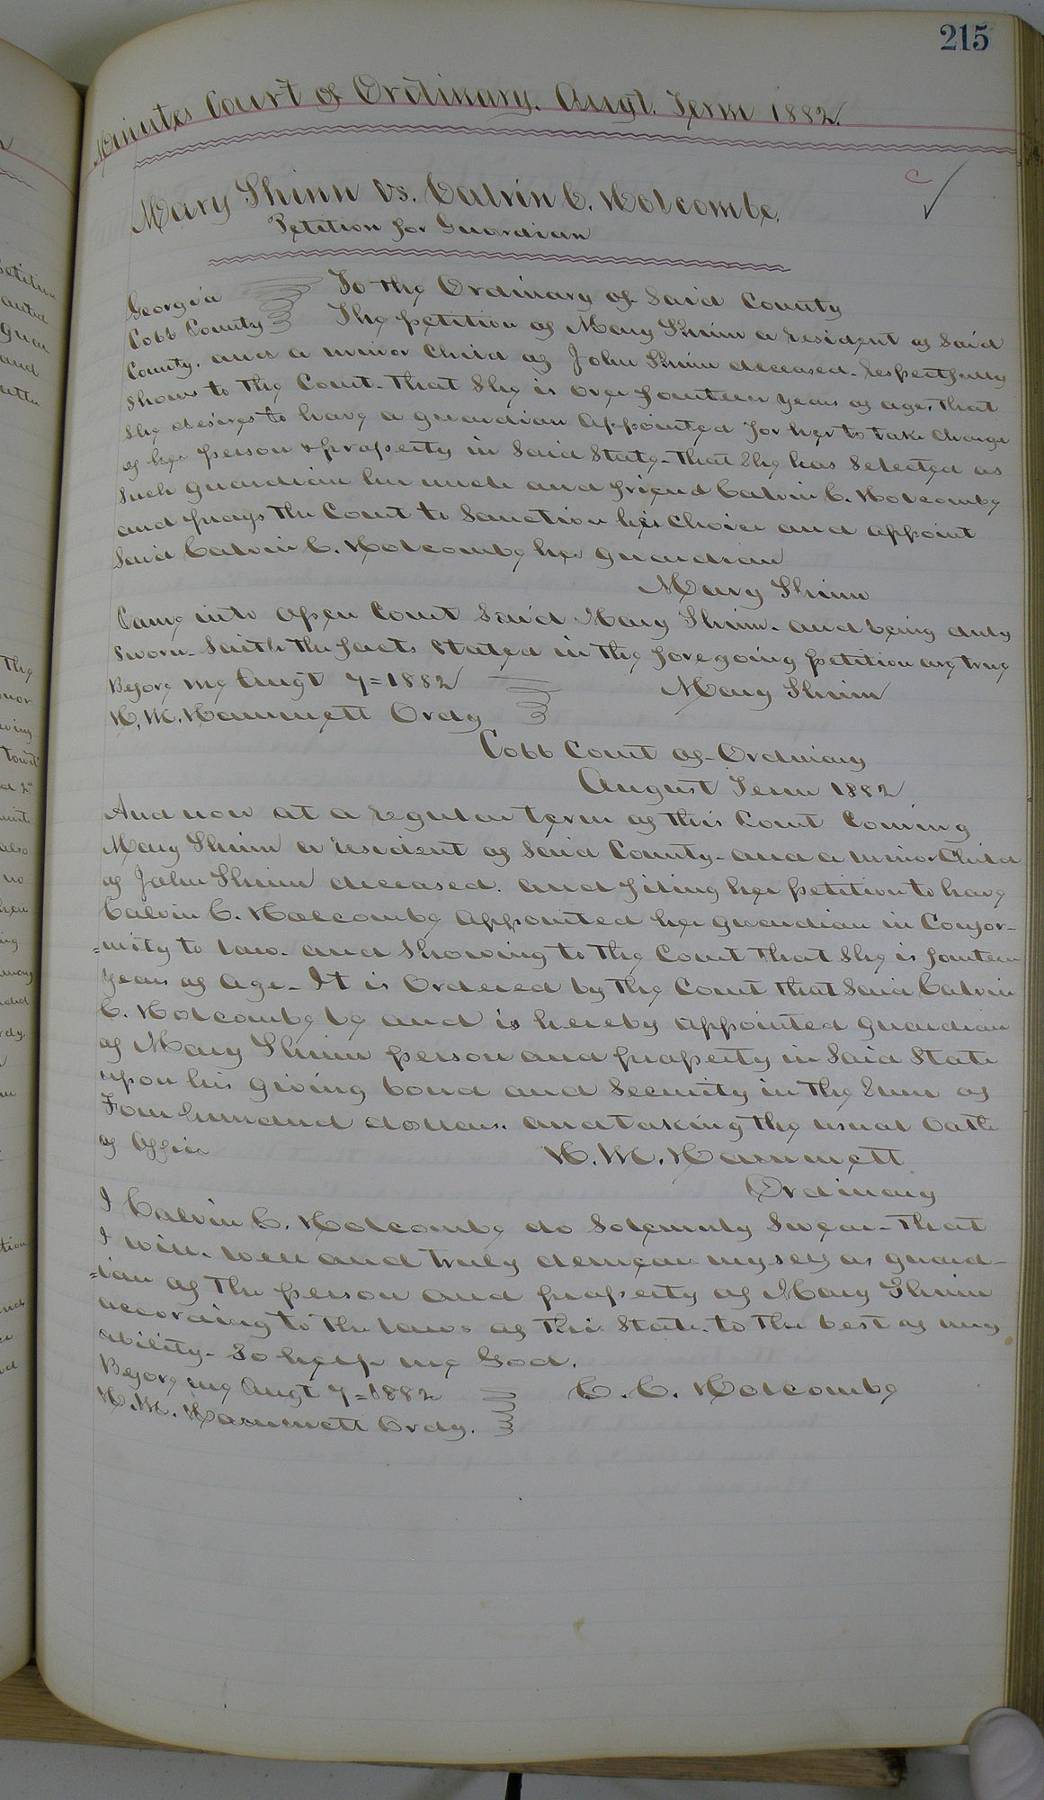 215
Minutes Court of Ordinary. Augt. Term 1882.
Mary Shinn vs. Calvin C. Holcombe.
Petition for Guardian
Georgia To the Ordinary of Said County
Cobb County The petition of Mary Shinn a resident of Said
County. and a minor Child of John Shinn deceased. respectfully
Shows to the Court. That She is over fourteen years of age, that
She desires to have a guardian appointed for her to take charge
of her person & property in Said State. That She has Selected as
Such guardian her uncle and friend Calvin C. Holcombe
and prays the Court to Sanction her Choice and appoint
Said Calvin C. Holcombe her guardian
Mary Shinn
Came into open Court Said Mary Shinn. and being duly
Sworn. Saith the facts Stated in the foregoing petition are true
Before me Augt 7=1882 Mary Shinn
H. M. Hammett Ordy
Cobb Court of Ordinary
August Term 1882
And now at a regular term of this Court Coming
Mary Shinn a resident of Said County. and a minor Child
of John Shinn deceased. and filing her petition to have
Calvin C. Holcombe appointed her guardian in Confor-
=mity to law. and Showing to the Court that She is fourteen
years of age. It is Ordered by the Court that Said Calvin
C. Holcombe be and is hereby appointed guardian
of Mary Shinn person and property in Said State
upon his giving bond and Security in the Sum of
Four hundred dollars. and taking the usual Oath
of Office H. M. Hammett
Ordinary
I Calvin C. Holcombe do Solemnly Swear. that
I will. well and truly demean myself as guard-
=ian of the person and property of Mary Shinn
according to the laws of this State. to the best of my
ability. So help me God.
Before me Augt 7=1882 C. C. Holcombe
H. M. Hammett Ordy.